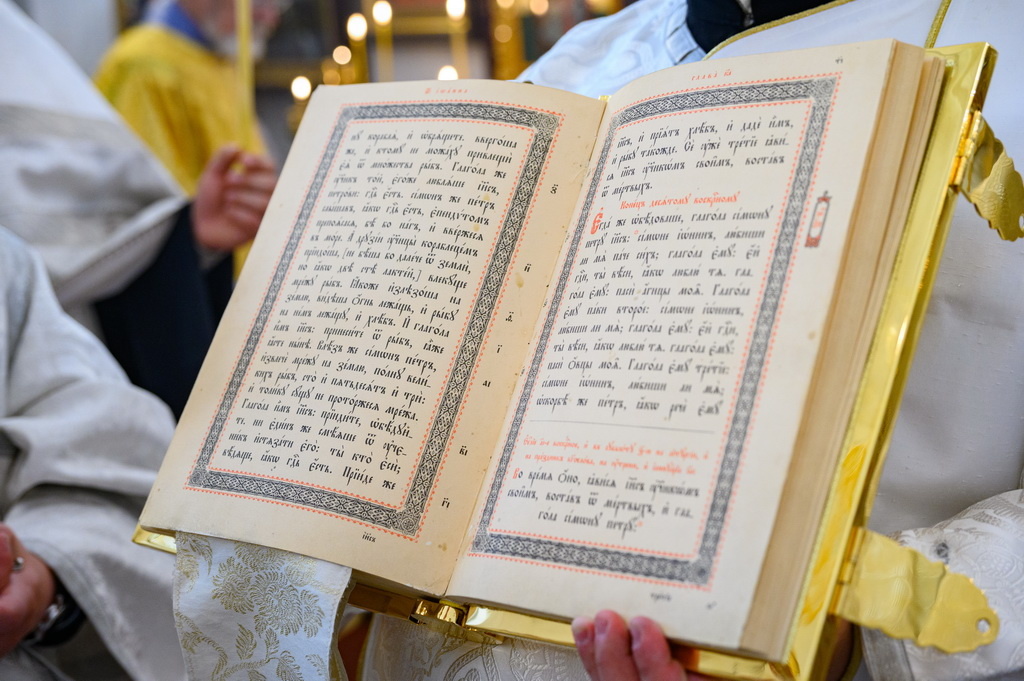 ну кораблѧ, и ѡбрѧщете. ввергоша
же, и ктому не можахꙋ привлещи
еѧ ѿ множества рыбъ. Глагола же
ᲂу҆ченикъ той, егоже люблѧше і҆и҃съ,
петрови: гдⷭ҇ь є҆сть. сімѡнъ же пе́тръ
слышавъ, ꙗ҆́кѡ гдⷭ҇ь є҆сть, є҆пендѵ́томъ
препоѧсасѧ, бѣ бо нагъ, и ввержесѧ
въ море. А друзіи ᲂу҆ченицы кораблецемъ
прїидоша, [не бѣша бо далече ѿ земли,
но ꙗ҆́кѡ двѣ стѣ лактей,] влекуще
мрежу рыбъ. Ꙗкоже излѣзоша на
землю, видѣша ѻгнь лежащь, и рыбу
на немъ лежащу, и хлѣбъ. И глагола
имъ і҆и҃съ: принесите ѿ рыбъ, ꙗже
ꙗсте нынѣ. Влѣзъ же сімѡнъ петръ,
извлече мрежу на землю, полну вели-
кихъ рыбъ, сто и пѧтьдесѧтъ и три:
и толику сущу не проторжесѧ мрежа.
Глагола имъ і҆и҃съ: прїидите, ѡбѣдуй-
те. ни единъ же смѣѧше ѿ ᲂу҆че-
никъ истѧзати его: ты кто еси;
вѣдѧще, ꙗкѡ гдⷭ҇ь есть. Прїиде же
і҆и҃съ
і҆и҃съ, и прїѧтъ хлѣбъ, и даде имъ,
и рыбу такожде. Се ᲂу҆же третїе ꙗви-
сѧ і҆и҃съ ᲂу҆ченикѡмъ своимъ, воставъ
ѿ мертвыхъ.
Конецъ десѧтому воскрⷭ҇ному
Егда же ѡбѣдоваше, глагола сімѡну
петру і҆и҃съ: сімѡне іѡнинъ, любиши
ли мѧ паче сихъ; глагола ему: ей
гдⷭ҇и, ты вѣси, ꙗкѡ люблю тѧ. гла-
гола ему: паси агнцы моѧ. Глагола
ему паки второе: сімѡне іѡнинъ,
любиши ли мѧ; глагола ему: ей гдⷭ҇и,
ты вѣси, ꙗкѡ люблю тѧ. глагола ему:
паси ѻвцы моѧ. Глагола ему третїе:
сімѡне іѡнинъ, любиши ли мѧ;
ѡскорбѣ же петръ, ꙗкѡ рече ему
Во времѧ ѻно, ꙗвисѧ і҆и҃съ ᲂу҆ченикѡмъ
своимъ, воставъ ѿ мертвыхъ, и гла-
гола сімѡну петру: